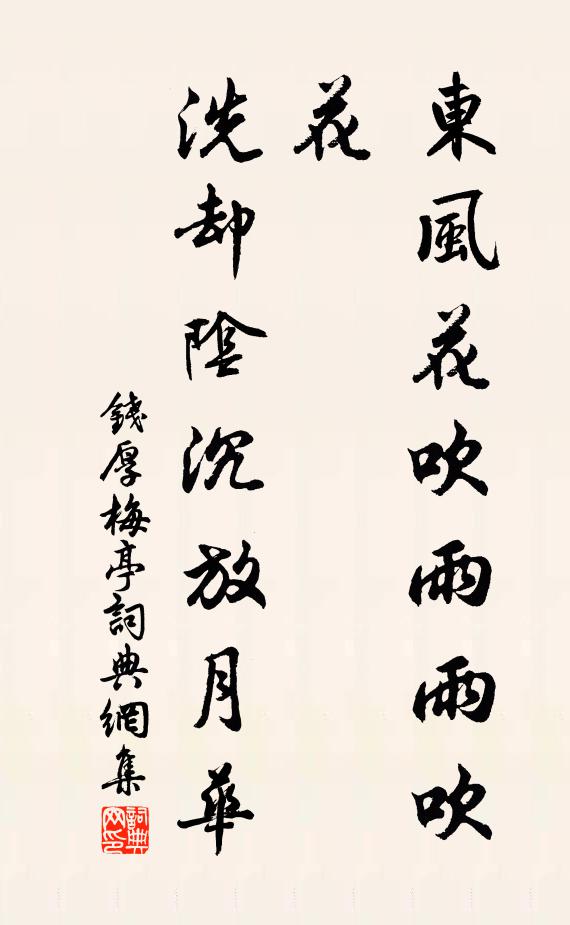 東風花吹雨雨吹
花
洗却陰沉放月華
錢厚梅亭詞典網集
詞典
网印